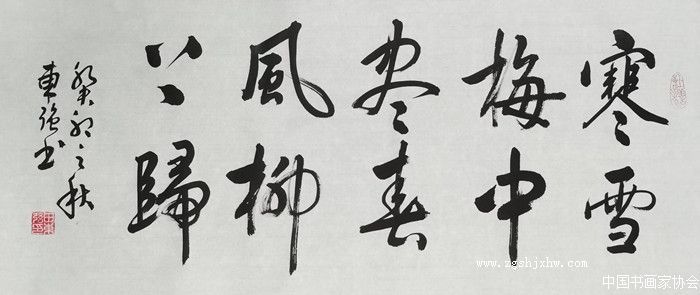 寒雪
梅中
尽春
風柳
上歸
癸卯之秋
東強书
www.zgshjxhw.com
中国书画家协会